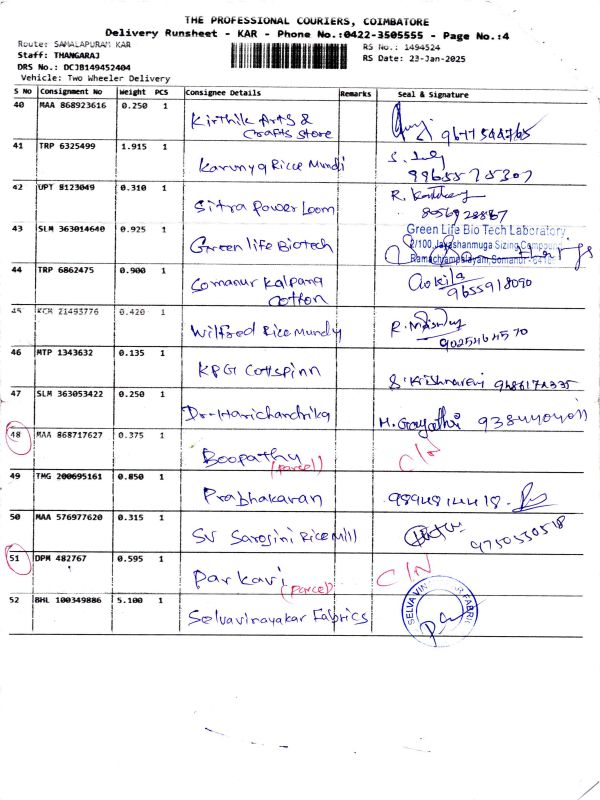 THE PROFESSIONAL COURIERS, COIMBATORE
Delivery Runsheet - KAR - Phone No.:0422-3505555 - Page No.:4
Route: SAMALAPURAM KAR
RS No.: 1494524
Staff: THANGARAJ
RS Date: 23-Jan-2025
DRS No.: DCJB149452404
Vehicle: Two Wheeler Delivery
S No Consignment No Weight PCS Consignee Details Remarks Seal & Signature
40 MAA 868923616 0.250 1 Kirthik Arts &
Crafts Store
41 TRP 6325499 1.915 1 Karunya Ricce Mundi
9965575307
42 UPT 8123049 0.310 1 Sitra Power Loom
8056928887
43 SLM 363014640 0.925 1 Green life Biotech
Green Life Bio Tech Laboratory
2/100, Jayashanmuga Sizing Compound
Ramachyampalayam, Somanur
44 TRP 6862475 0.900 1 Somanur Kalpana
Cotton
9655918090
45 KCM 21493776 0.420 1 Wilfred Rice Mundy
9025464570
46 MTP 1343632 0.135 1 KPG Cottspinn
S. Krishnaveni
47 SLM 363053422 0.250 1 Dr-Harichandrika H. Gayathri
48 MAA 868717627 0.375 1 Boopathy C/N
(Parcel)
49 TMG 200695161 0.850 1 Prabhakaran
50 MAA 576977620 0.315 1 SV Sarojini Rice Mill
9750530518
51 DPM 482767 0.595 1 Parkavi C/N
(Parcel)
52 BHL 100349886 5.100 1 Selvavinayakar Fabrics
SELVAVIN FABRIC